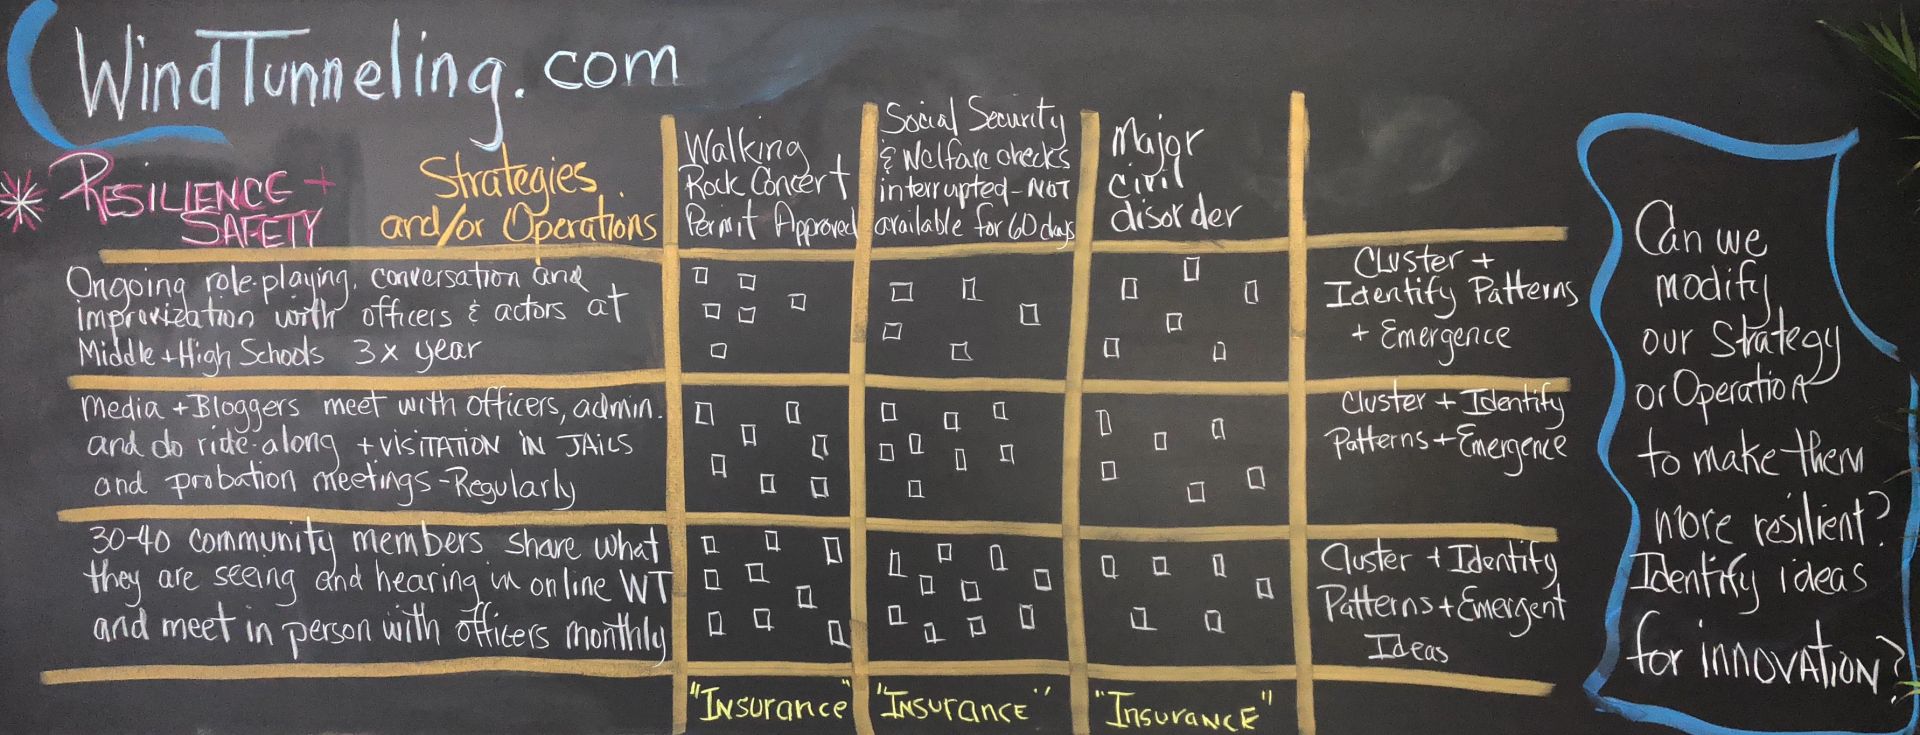 WindTunneling.com
* RESILIENCE +
SAFETY
Strategies
and/or Operations
Walking
Rock Concert
Permit Approved
Social Security
& Welfare checks
interrupted - NOT
available for 60 days
Major
civil
disorder
Ongoing role-playing, conversation and
improvization with officers & actors at
Middle + High Schools 3x year
Cluster +
Identify Patterns
+ Emergence
Media + Bloggers meet with officers, admin.
and do ride-along + VISITATION IN JAILS
and probation meetings - Regularly
Cluster + Identify
Patterns + Emergence
30-40 community members share what
they are seeing and hearing in online WT
and meet in person with officers monthly
Cluster + Identify
Patterns + Emergent
Ideas
"Insurance" "Insurance" "Insurance"
Can we
modify
our Strategy
or Operation
to make them
more resilient?
Identify ideas
for innovation?